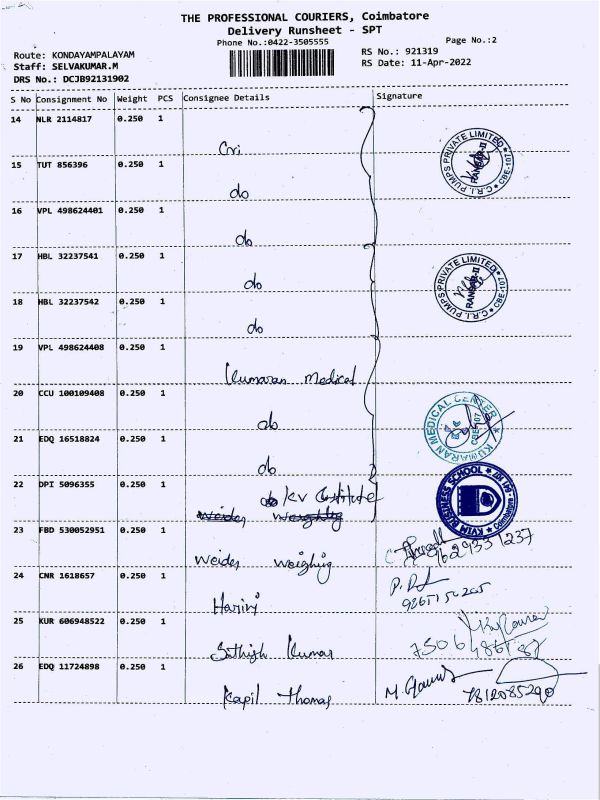 THE PROFESSIONAL COURIERS, Coimbatore
Delivery Runsheet - SPT
Phone No.:0422-3505555
Page No.:2
Route: KONDAYAMPALAYAM
RS No.: 921319
Staff: SELVAKUMAR.M
RS Date: 11-Apr-2022
DRS No.: DCJB92131902
S No Consignment No Weight PCS Consignee Details Signature
14 NLR 2114817 0.250 1
Cri
15 TUT 856396 0.250 1
do
C.R.I. PUMPS PRIVATE LIMITED CBE-107
16 VPL 498624401 0.250 1
do
17 HBL 32237541 0.250 1
do
C.R.I. PUMPS PRIVATE LIMITED CBE-107
18 HBL 32237542 0.250 1
do
19 VPL 498624408 0.250 1
Kumaran Medical
20 CCU 100109408 0.250 1
do
KUMARAN MEDICAL CENTER
21 EDQ 16518824 0.250 1
do
22 DPI 5096355 0.250 1
KVIM BUSINESS SCHOOL
23 FBD 530052951 0.250 1
Weider weighing
24 CNR 1618657 0.250 1
Harini
25 KUR 606948522 0.250 1
Sathish Kumar
26 EDQ 11724898 0.250 1
Kapil Thomas
7812085290